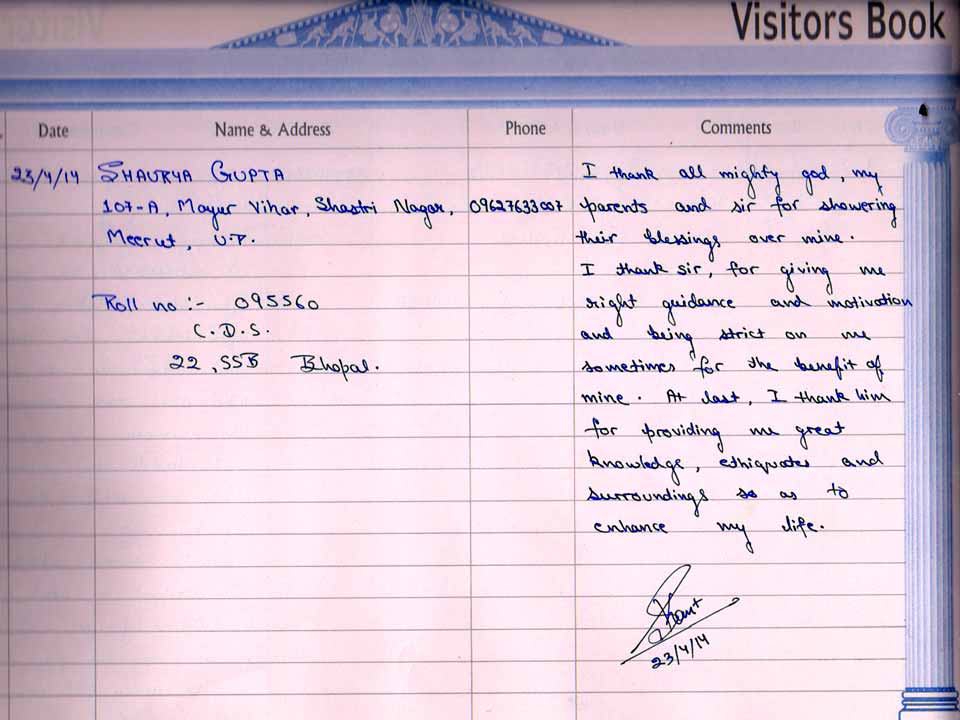 Visitors Book
Date Name & Address Phone Comments
23/4/14 SHAURYA GUPTA
107-A, Mayur Vihar, Shastri Nagar, 09627633007
Meerut, U.P.
Roll no :- 095560
C.D.S.
22, SSB Bhopal.
I thank all mighty god, my
parents and sir for showering
their blessings over mine.
I thank sir, for giving me
right guidance and motivation
and being strict on me
sometimes for the benefit of
mine. At last, I thank him
for providing me great
knowledge, ethiquates and
surroundings so as to
enhance my life.
23/4/14